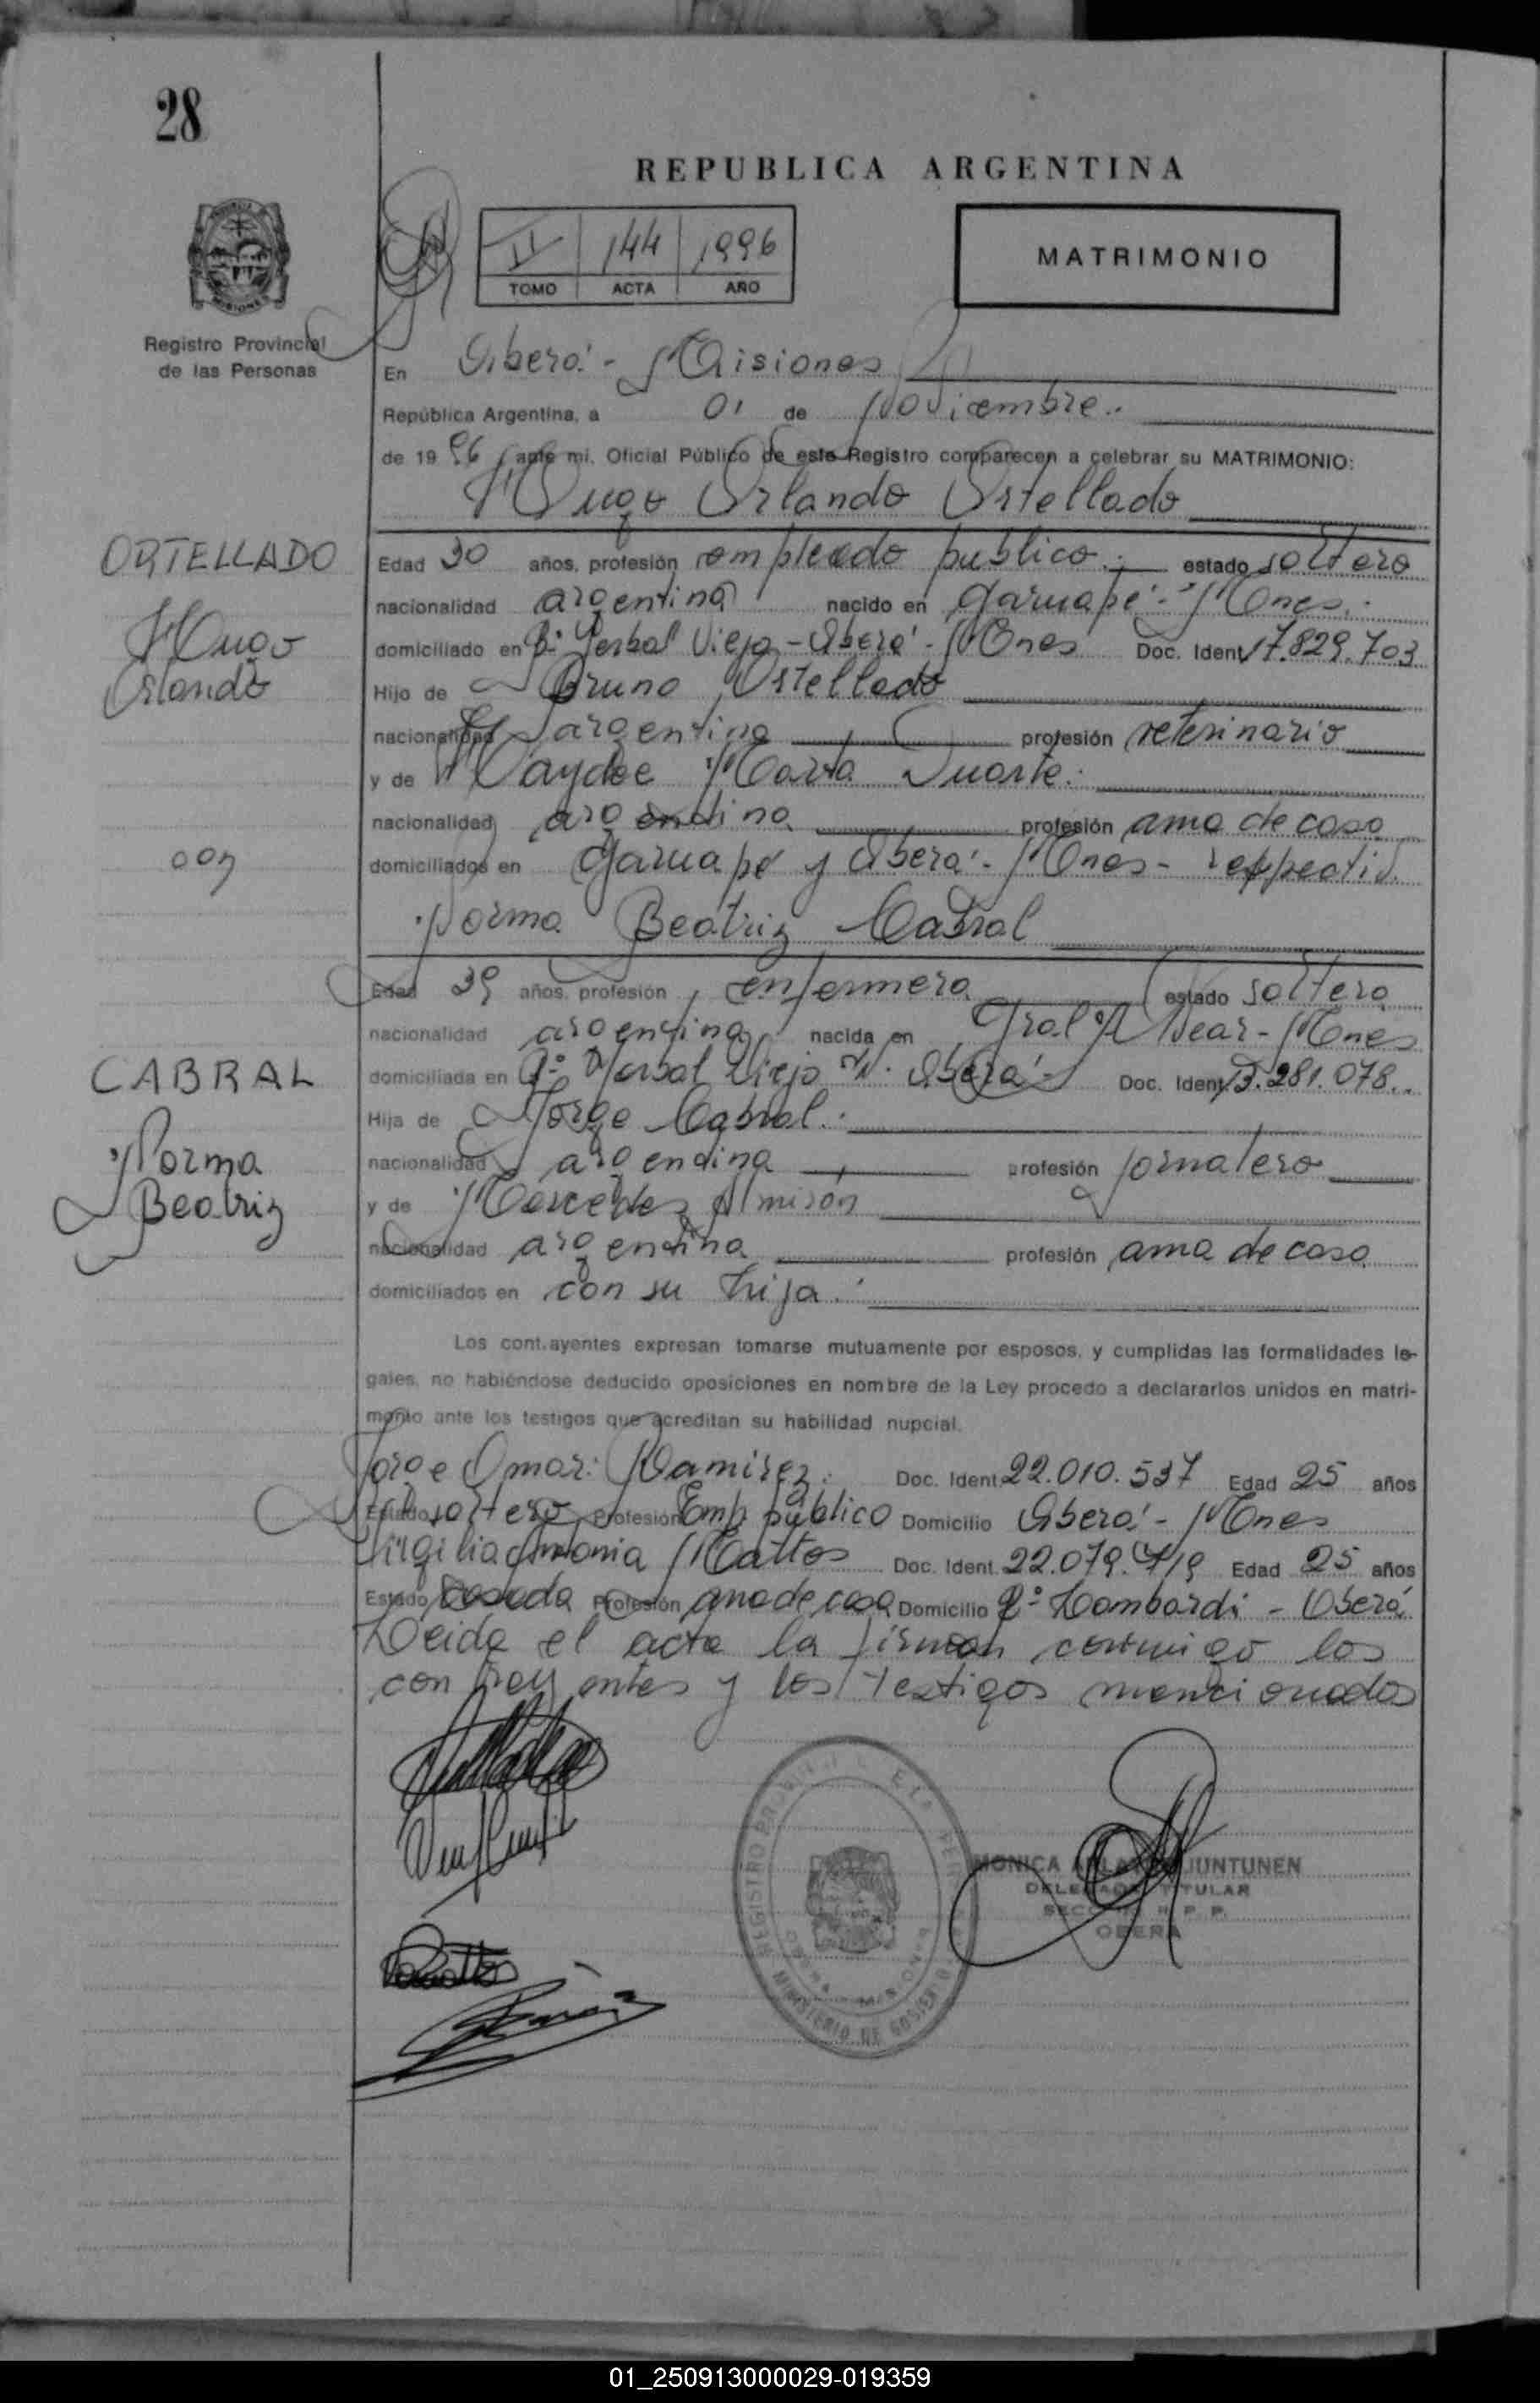 28
REPUBLICA ARGENTINA
II 144 1996
TOMO ACTA AÑO
MATRIMONIO
Registro Provincial
de las Personas
En Oberá - Misiones
República Argentina, a 01 de Noviembre.
de 1996, ante mi, Oficial Público de este Registro comparecen a celebrar su MATRIMONIO:
Hugo Orlando Ortellado
ORTELLADO
Hugo
Orlando
con
CABRAL
Norma
Beatriz
Edad 30 años, profesión empleado publico. estado soltero
nacionalidad argentina nacido en Garuapé - Mnes.
domiciliado en Bº Yerbal Viejo - Oberá - Mnes Doc. Ident. 17.829.703
Hijo de Bruno Ortellado
nacionalidad argentina profesión veterinario
y de Haydee Marta Duarte.
nacionalidad argentina profesión ama de casa
domiciliados en Garuapé y Oberá - Mnes - respectiv.
Norma Beatriz Cabral
Edad 39 años, profesión enfermera estado soltera
nacionalidad argentina nacida en Gral Alvear - Mnes
domiciliada en Bº Yerbal Viejo Oberá - Doc. Ident. 13.281.078.
Hija de Jorge Cabral.
nacionalidad argentina profesión jornalero
y de Mercedes Almirón
nacionalidad argentina profesión ama de casa
domiciliados en con su hija.
Los cont.ayentes expresan tomarse mutuamente por esposos, y cumplidas las formalidades le-
gales, no habiéndose deducido oposiciones en nombre de la Ley procedo a declararlos unidos en matri-
monio ante los testigos que acreditan su habilidad nupcial.
Jorge Omar Ramirez. Doc. Ident. 22.010.537 Edad 25 años
Estado soltero Profesión Emp. público Domicilio Oberá - Mnes
Virgilia Antonia Mattos Doc. Ident. 22.079.719 Edad 25 años
Estado casada Profesión ama de casa Domicilio Bº Lombardi - Oberá
Leida el acta la firman conmigo los
contrayentes y los testigos mencionados
REGISTRO PROVINCIAL DE LAS PERSONAS
MINISTERIO DE GOBIERNO
MONICA JUNTUNEN
DELEGADA TITULAR
SECC. R. P. P.
OBERA
01_250913000029-019359